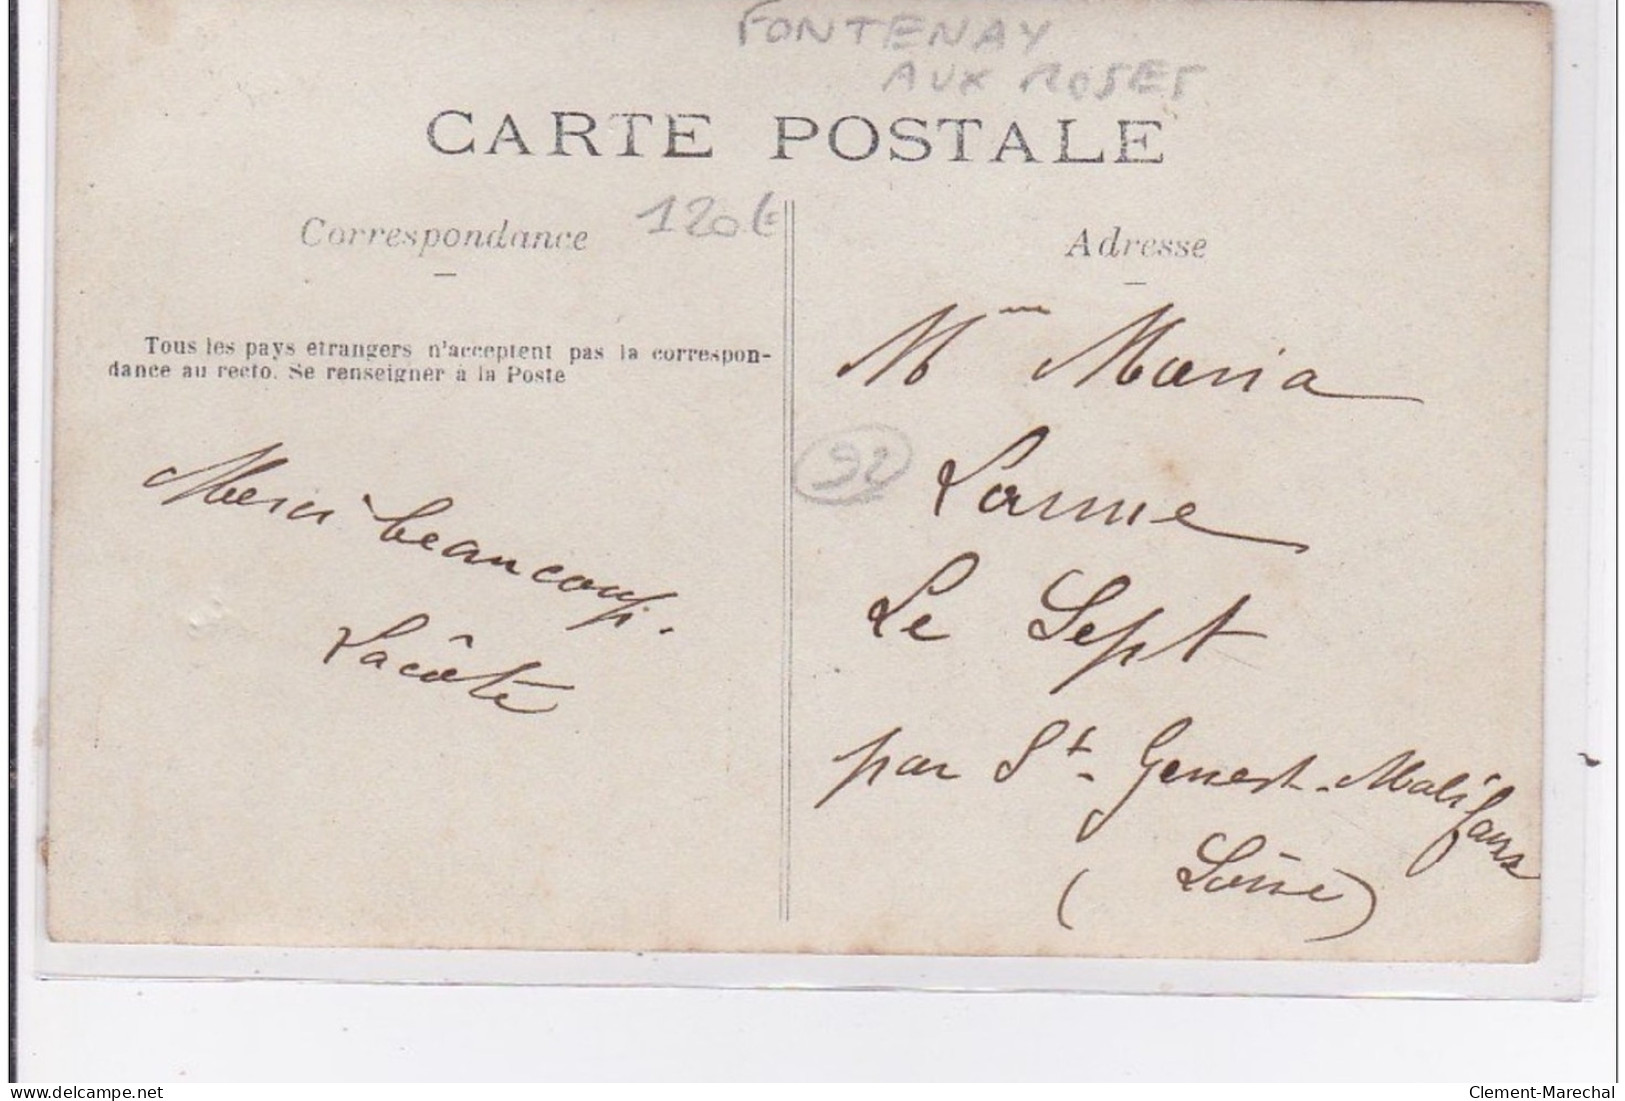 FONTENAY
AUX ROSES
CARTE POSTALE
Correspondance
120€
Adresse
Tous les pays etrangers n'acceptent pas la correspon-
dance au recto. Se renseigner à la Poste
Merci beaucoup.
Lacôte
Mme Maria
92
Larme
Le Sept
par St. Genest-Malifaux
(Loire)
delcampe.net
Clement-Marechal